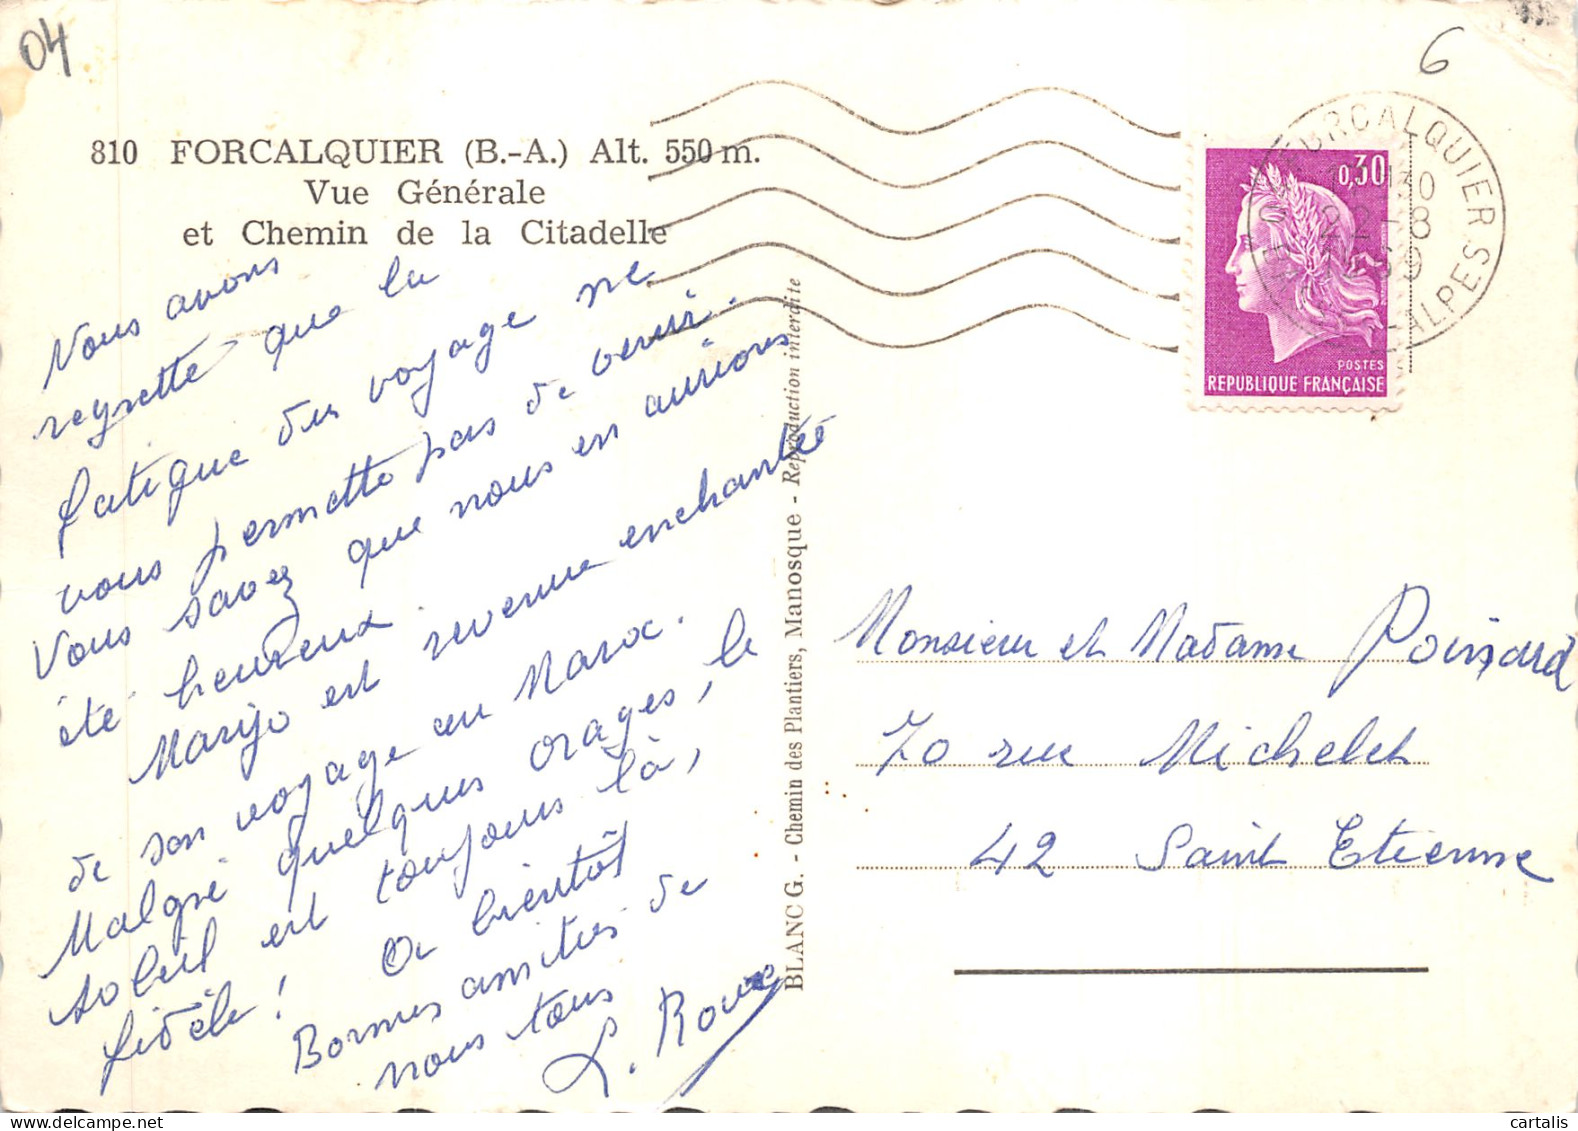 04
6
810 FORCALQUIER (B.-A.) Alt. 550 m.
Vue Générale
et Chemin de la Citadelle
Nous avons
regretté que la
fatigue du voyage ne
vous permette pas de venir.
Vous savez que nous en aurions
été heureux.
Marijo est revenue enchantée
de son voyage au Maroc.
Malgré quelques orages, le
soleil est toujours là,
fidèle! A bientôt
Bonnes amitiés de
nous tous
BLANC G. - Chemin des Plantiers, Manosque - Reproduction interdite
FORCALQUIER
30
22-8
69
ALPES
0,30
POSTES
RÉPUBLIQUE FRANÇAISE
Monsieur et Madame Poinard
70 rue Michelet
42 Saint Etienne
cartalis